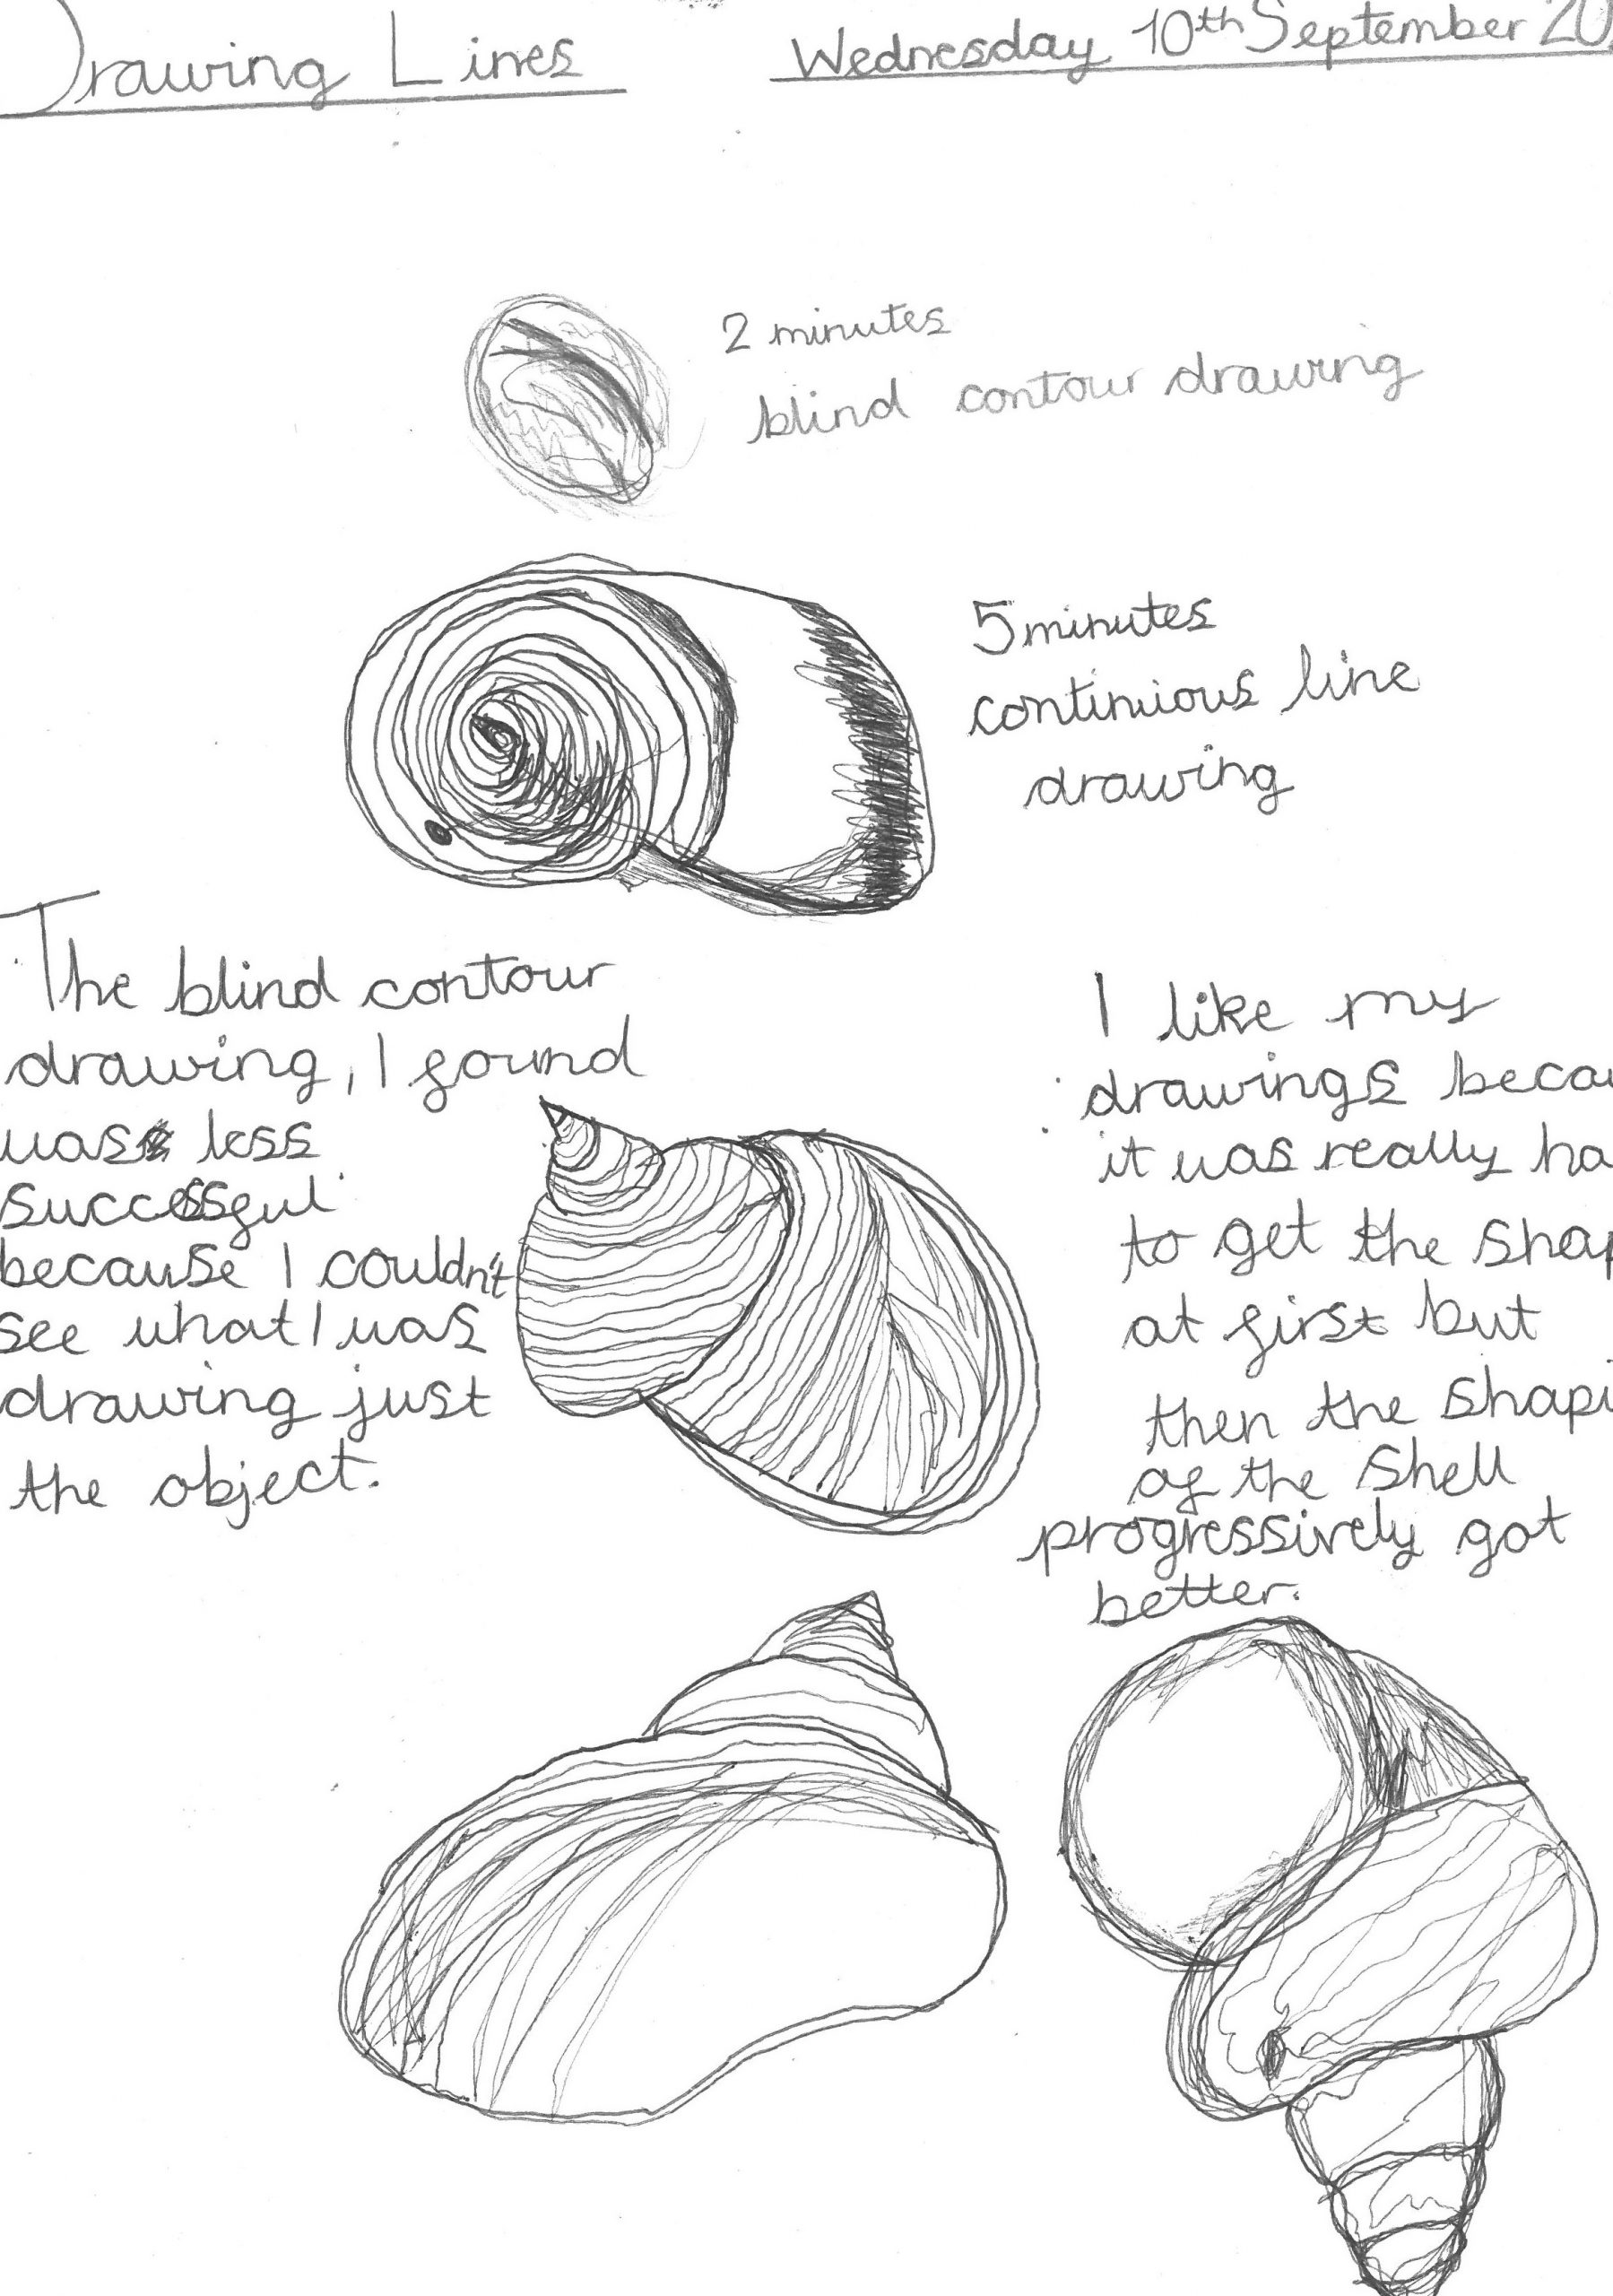 Drawing Lines
Wednesday 10th September 20
2 minutes
blind contour drawing
5 minutes
continuious line
drawing
The blind contour
drawing, I found
was less
successful
because I couldn't
see what I was
drawing just
the object.
I like my
drawings becau
it was really ha
to get the shap
at first but
then the shapi
of the shell
progressively got
better.